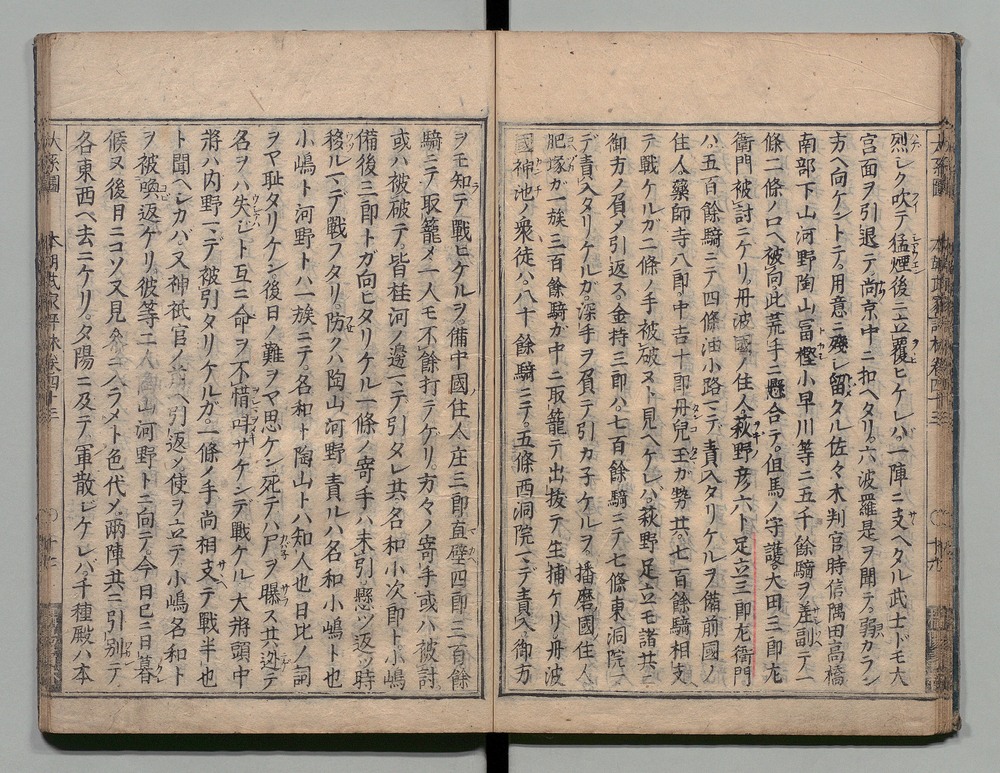 烈シク吹テ猛煙後ニ立覆ヒケレハ一陣ニ支ヘタル武士ドモ大
宮面ヲ引退テ尚京中ニ扣ヘタリ六波羅是ヲ聞テ弱カラン
方ヘ向ケントテ用意ニ殘シ留タル佐々木判官時信隅田高橋
南部下山河野陶山冨樫小早川等ニ五千餘騎ヲ差副テ一
條二條ノ口ヘ被向此荒手ニ懸合テ但馬ノ守護大田三郎左
衛門被討ニケリ丹波國ノ住人荻野彦六ト足立三郎左衛門
ハ五百餘騎ニテ四條油小路マデ責入タリケルヲ備前國ノ
住人藥師寺八郎中吉十郎丹兒玉ガ勢共七百餘騎相支
テ戰ケルガ二條ノ手被破ヌト見ヘケレハ荻野足立モ諸共ニ
御方ノ負メ引返ス金持三郎ハ七百餘騎ニテ七條東洞院マ
デ責入タリケルガ深手ヲ負テ引カ子ケルヲ播磨國ノ住人
肥塚ガ一族三百餘騎ガ中ニ取籠テ出拔テ生捕ケリ丹波
國神池ノ衆徒ハ八十餘騎ニテ五條西洞院マデ責入御方
ヲモ知テ戰ヒケルヲ備中國住人庄三郎直壁四郎三百餘
騎ニテ取籠メ一人モ不餘打テケリ方々ノ寄手或ハ被討
或ハ被破テ皆桂河ノ邉マデ引タレ共名和小次郎ト小嶋
備後三郎トガ向ヒタリケル一條ノ寄手ハ未引懸ツ返ツ時
移ルマデ戰フタリ防クハ陶山河野責ルハ名和小嶋ト也
小嶋ト河野トハ一族ニテ名和ト陶山トハ知人也日比ノ詞
ヲヤ恥タリケン後日ノ難ヲヤ思ケン死テハ尸ヲ曝ス共迯テ
名ヲハ失シト互ニ命ヲ不惜呼サケンデ戰ケル大將頭中
將ハ内野マデ被引タリケルガ一條ノ手尚相支ヘテ戰半也
ト聞ヘシカバ又神祇官ノ前ヘ引返メ使ヲ立テ小嶋名和ト
ヲ被喚返ケリ彼等二人陶山河野トニ向テ今日已ニ日暮
候ヌ後日ニコソ又見參ニ入ラメト色代メ兩陣共ニ引別テ
各東西ヘ去ニケリ夕陽ニ及テ軍散シケレバ千種殿ハ本